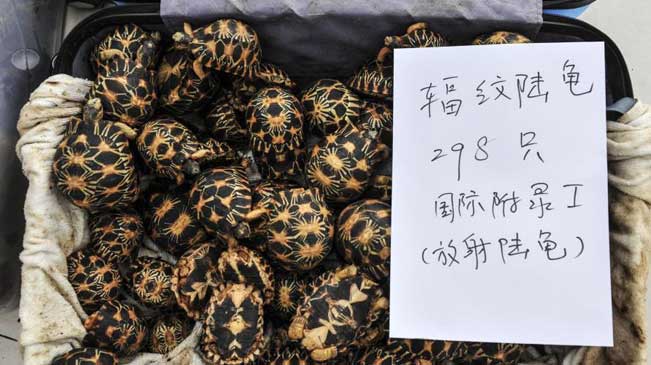 辐纹陆龟
298只
国际附录I
(放射陆龟)